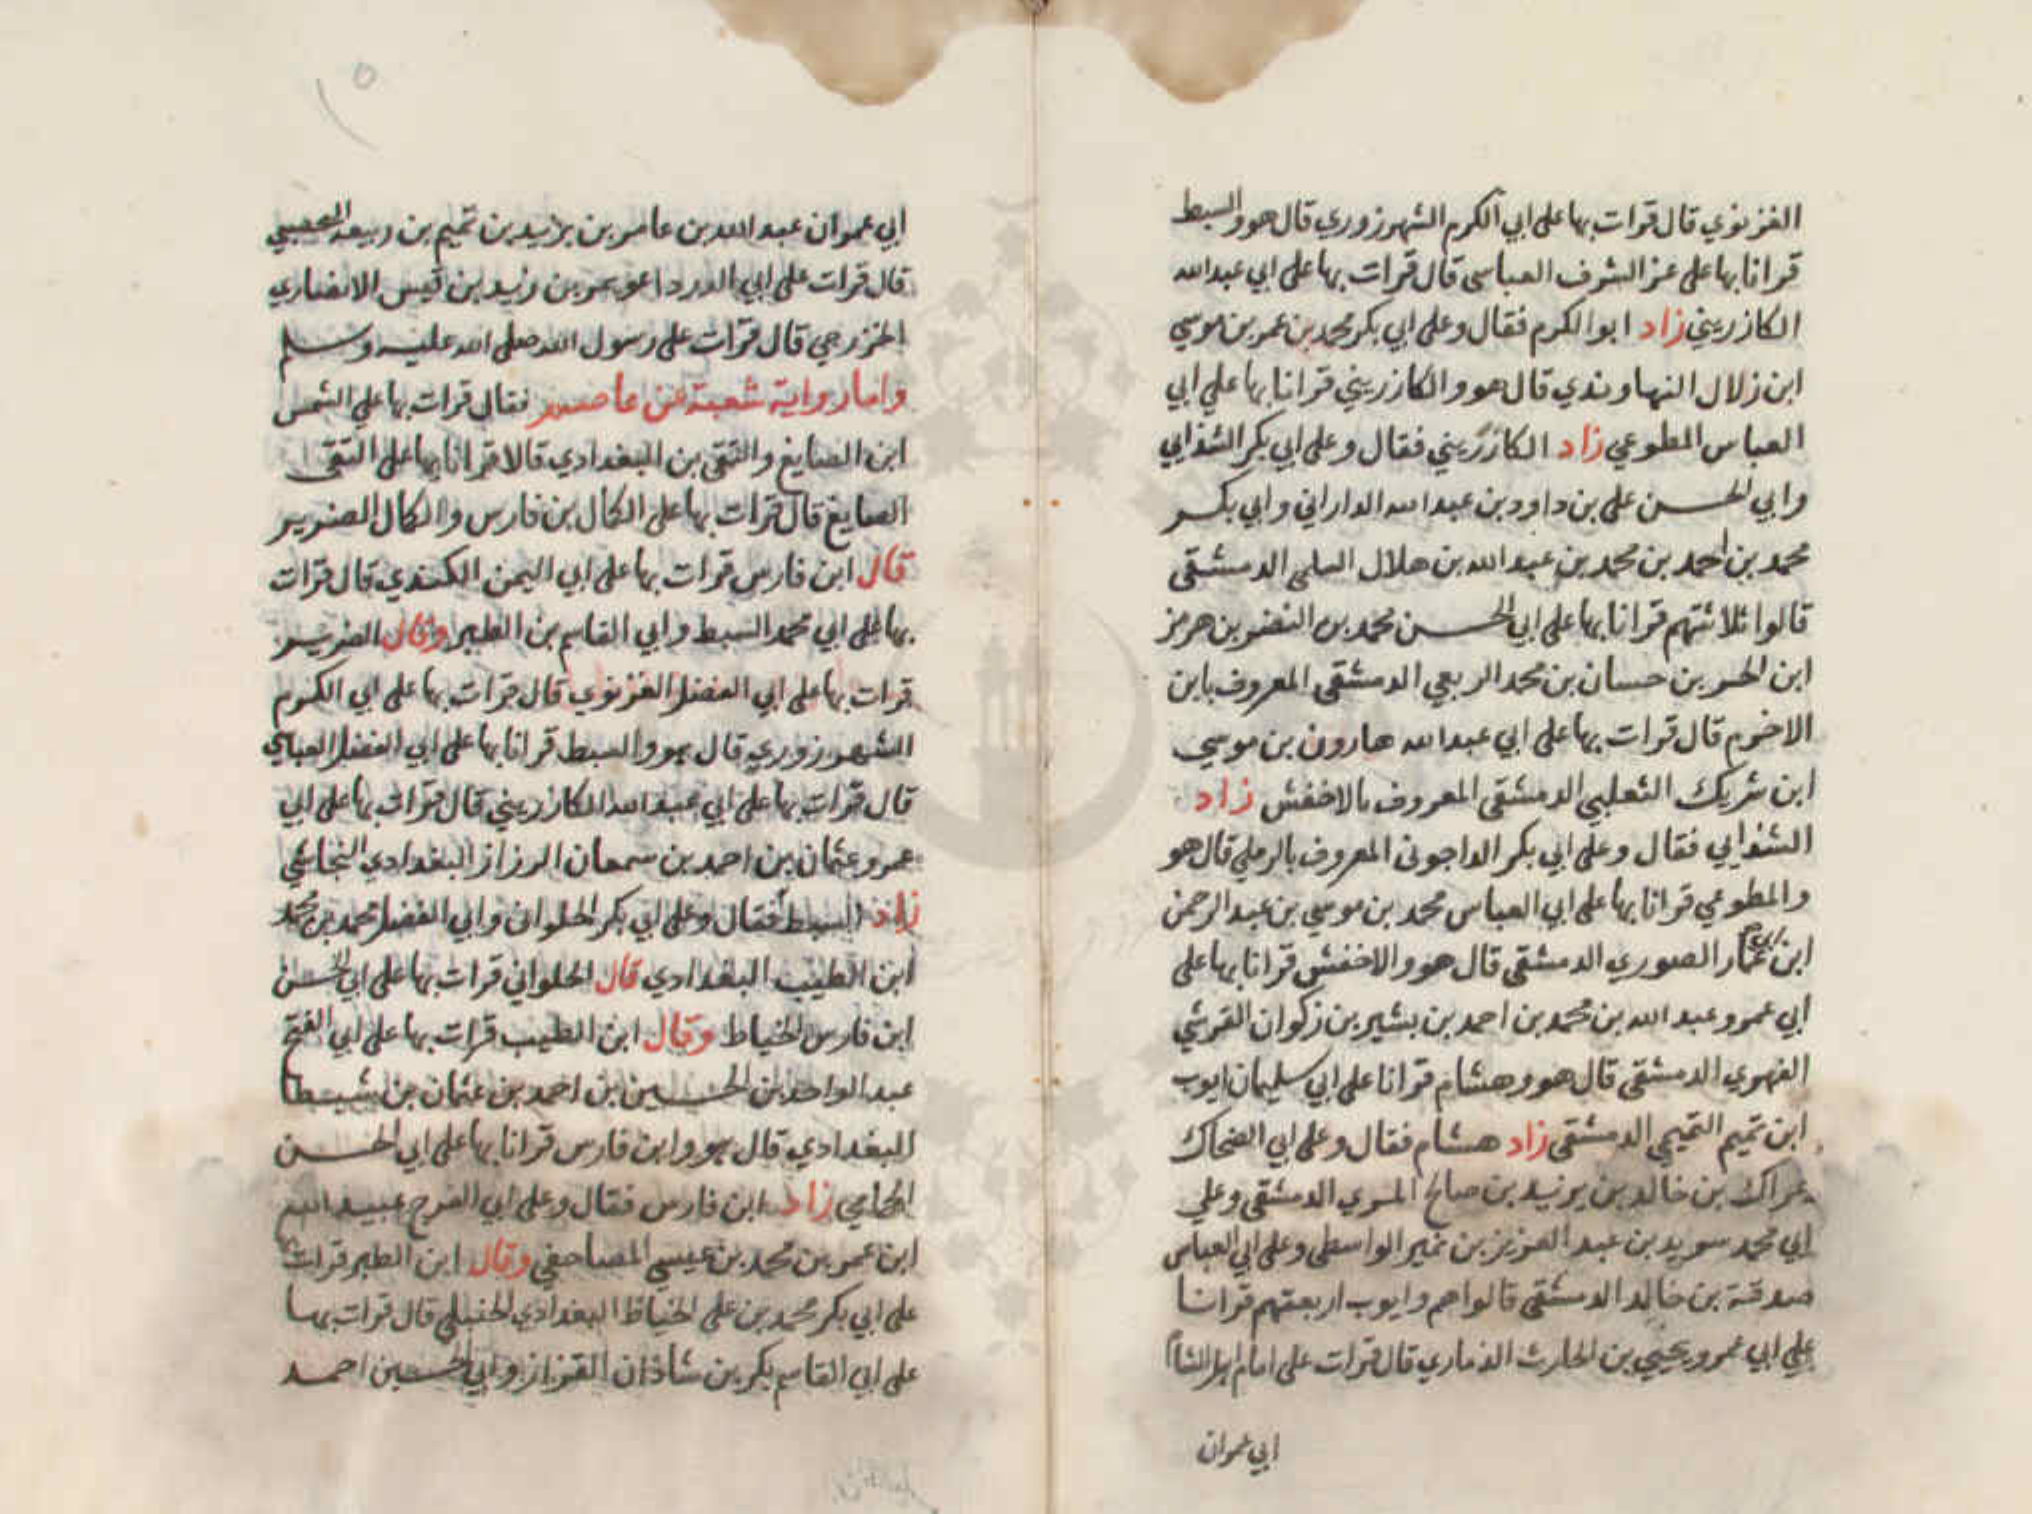 الغزنوي قال قرات بها على ابي الكرم الشهرزوري قال هو والسبط
قرانا بها على عز الشرف العباسي قال قرات بها على ابي عبد الله
الكازريني زاد ابو الكرم فقال وعلى ابي بكر محمد بن عمر بن موسي
ابن زلال النهاوندي قال هو والكازريني قرانا بها علي ابي
العباس المطوعي زاد الكازريني فقال وعلى ابي بكر الشذايي
وابي الحسن على بن داود بن عبد الله الداراني وابي بكر
محمد بن احمد بن محمد بن عبد الله بن هلال السلمي الدمشقى
قالوا ثلاثتهم قرانا بها على ابي الحسن محمد بن النضر بن مرمز
ابن الحر بن حسان بن محمد الربعي الدمشقى المعروف بابن
الاخرم قال قرات بها على ابي عبد الله هارون بن موسي
ابن شريك التعلبي الدمشقى المعروف بالاخفش زاد
الشذايي فقال وعلى ابي بكر الداجونى المعروف بالرملي قال هو
والمطوعي قرانا بها على ابي العباس محمد بن موسي بن عبد الرحمن
ابن عمار الصوري الدمشقى قال هو والاخفش قرانا بها على
ابي عمرو عبد الله بن محمد بن احمد بن بشير بن زكوان القرشي
الفهري الدمشقى قال هو وهشام قرانا على ابي سليمان ايوب
ابن تميم التميمي الدمشقى زاد هشام فقال وعلى ابي الضحاك
عراك بن خالد بن يزيد بن صالح المري الدمشقى وعلي
ابي محمد سويد بن عبد العزيز بن نمير الواسطى وعلى ابي العباس
صدقة بن خالد الدمشقى قالوا هم وايوب اربعتهم قرانا
علي ابي عمرو يحيي بن الحارث الذماري قال قرات على امام اهل الشام
ابي عمران
ابي عمران عبد الله بن عامر بن يزيد بن تميم بن ربيعه اليحصبي
قال قرات على ابي الدرداء عويمر بن زيد بن قيس الانصاري
الخزرجي قال قرات على رسول الله صلى الله عليه وسلم
واما رواية شعبة عن عاصم فقال قرات بها علي الشمس
ابن الصايغ والتقى بن البغدادي قالا قرانا بها على التقى
الصايغ قال قرات بها على الكمال بن فارس والكمال الضرير
قال ابن فارس قرات بها على ابي اليمن الكندي قال قرات
بها على ابي محمد السبط وابي القاسم بن الطبر وقال الضرير
قرات بها على ابي الفضل الغزنوي قال قرات بها على ابي الكرم
الشهرزوري قال هو والسبط قرانا بها على ابي الفضل العباسي
قال قرات بها على ابي عبد الله الكازريني قال قرات بها على ابي
عمرو عثمان بن احمد بن سمعان الرزاز البغدادي النجاشي
زاد السبط فقال وعلى ابي بكر الحلوانى وابي الفضل محمد بن محمد
ابن الطيب البغدادي قال الحلواني قرات بها على ابي الحسن
ابن فارس الخياط وقال ابن الطيب قرات بها على ابي الفتح
عبد الواحد بن الحسين بن احمد بن عثمان بن شيطا
البغدادي قال هو وابن فارس قرانا بها على ابي الحسن
الحمامي زاد ابن فارس فقال وعلى ابي الفرج عبيد الله
ابن عمر بن محمد بن عيسي المصاحفي وقال ابن الطبر قرات
على ابي بكر محمد بن على الخياط البغدادي الحنبلي قال قرات بها
على ابي القاسم بكر بن شاذان القزاز وابي الحسين احمد